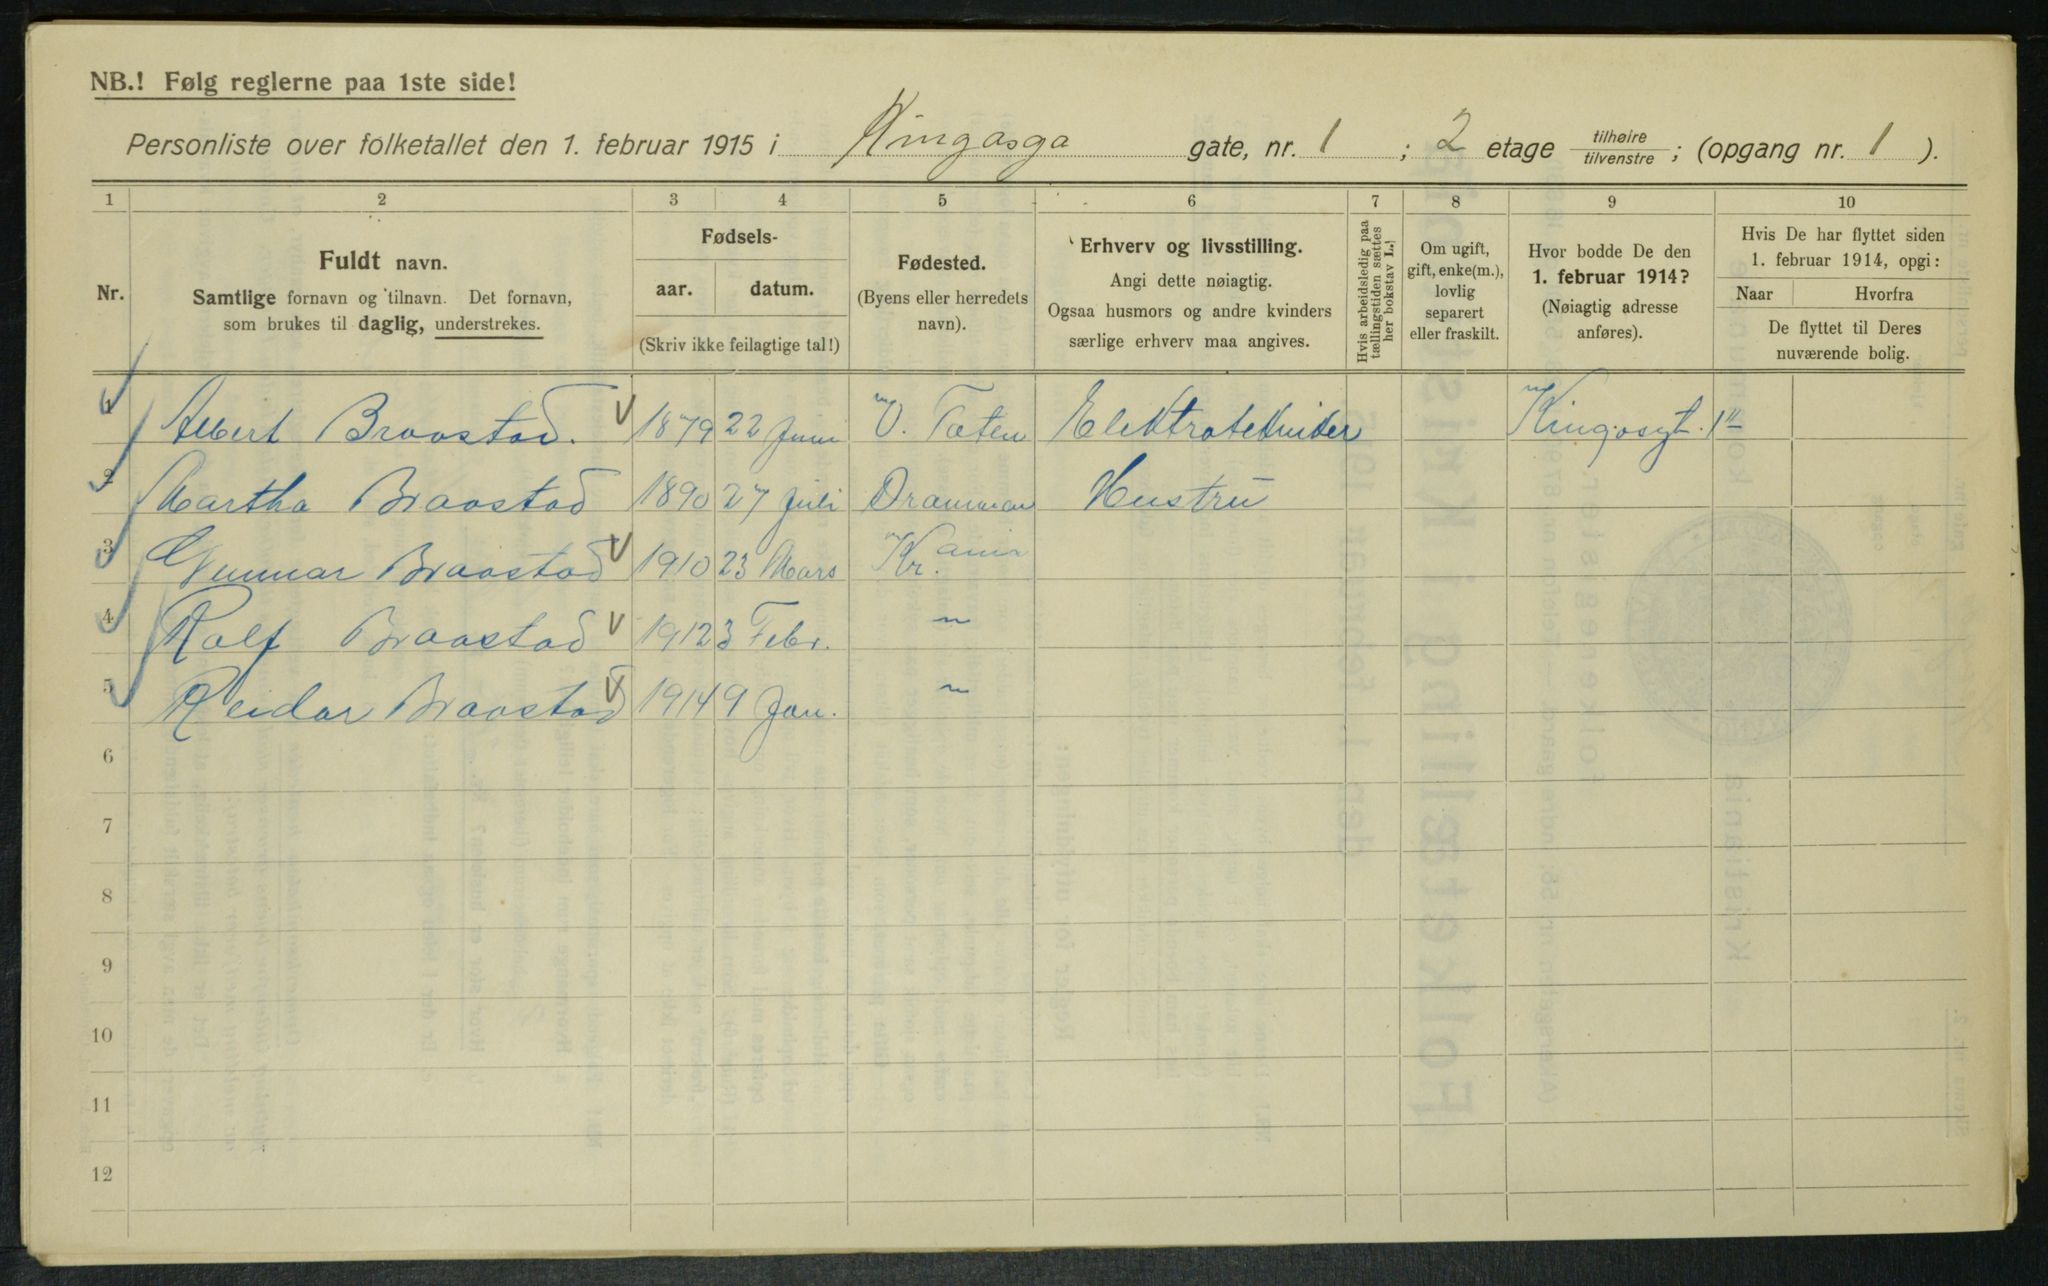 NB.! Følg reglerne paa 1ste side!
Personliste over folketallet den 1. februar 1915 i Kingosga gate, nr. 1 ; 2 etage tilhøire/tilvenstre ; (opgang nr. 1 ).
1 2 3 4 5 6 7 8 9 10
Nr.
Fuldt navn.
Samtlige fornavn og tilnavn. Det fornavn,
som brukes til daglig, understrekes.
Fødsels-
aar. datum.
(Skriv ikke feilagtige tal!)
Fødested.
(Byens eller herredets
navn).
Erhverv og livsstilling.
Angi dette nøiagtig.
Ogsaa husmors og andre kvinders
særlige erhverv maa angives.
Hvis arbeidsledig paa
tællingstiden sættes
her bokstav L.
Om ugift,
gift, enke(m.),
lovlig
separert
eller fraskilt.
Hvor bodde De den
1. februar 1914?
(Nøiagtig adresse
anføres).
Hvis De har flyttet siden
1. februar 1914, opgi:
Naar Hvorfra
De flyttet til Deres
nuværende bolig.
1 Albert Braastad. 1879 22 Juni V. Toten Elektrotekniker Kingosgt. 1 II
2 Martha Braastad 1890 27 Juli Drammen Hustru
3 Gunnar Braastad 1910 23 Mars Kr.ania
4 Rolf Braastad 1912 3 Febr. "
5 Reidar Braastad 1914 9 Jan. "
6
7
8
9
10
11
12